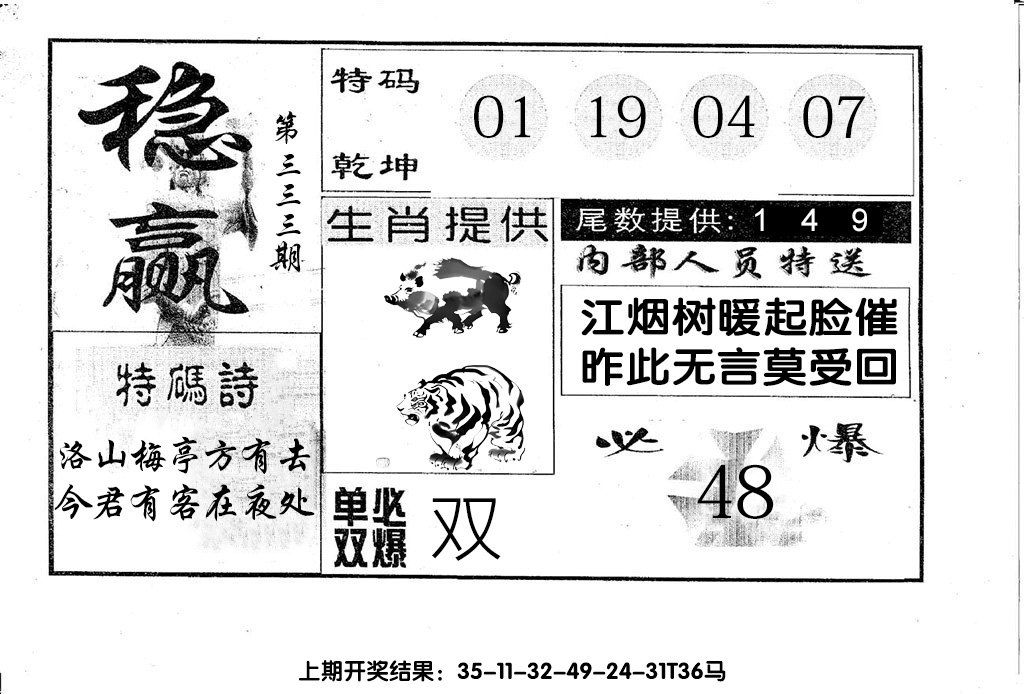 稳赢
第三三三期
特码
乾坤
01 19 04 07
生肖提供
尾数提供: 1 4 9
内部人员特送
江烟树暖起脸催
昨此无言莫受回
特碼詩
洛山梅亭方有去
今君有客在夜处
必爆
48
单双必爆
双
上期开奖结果：35-11-32-49-24-31T36马